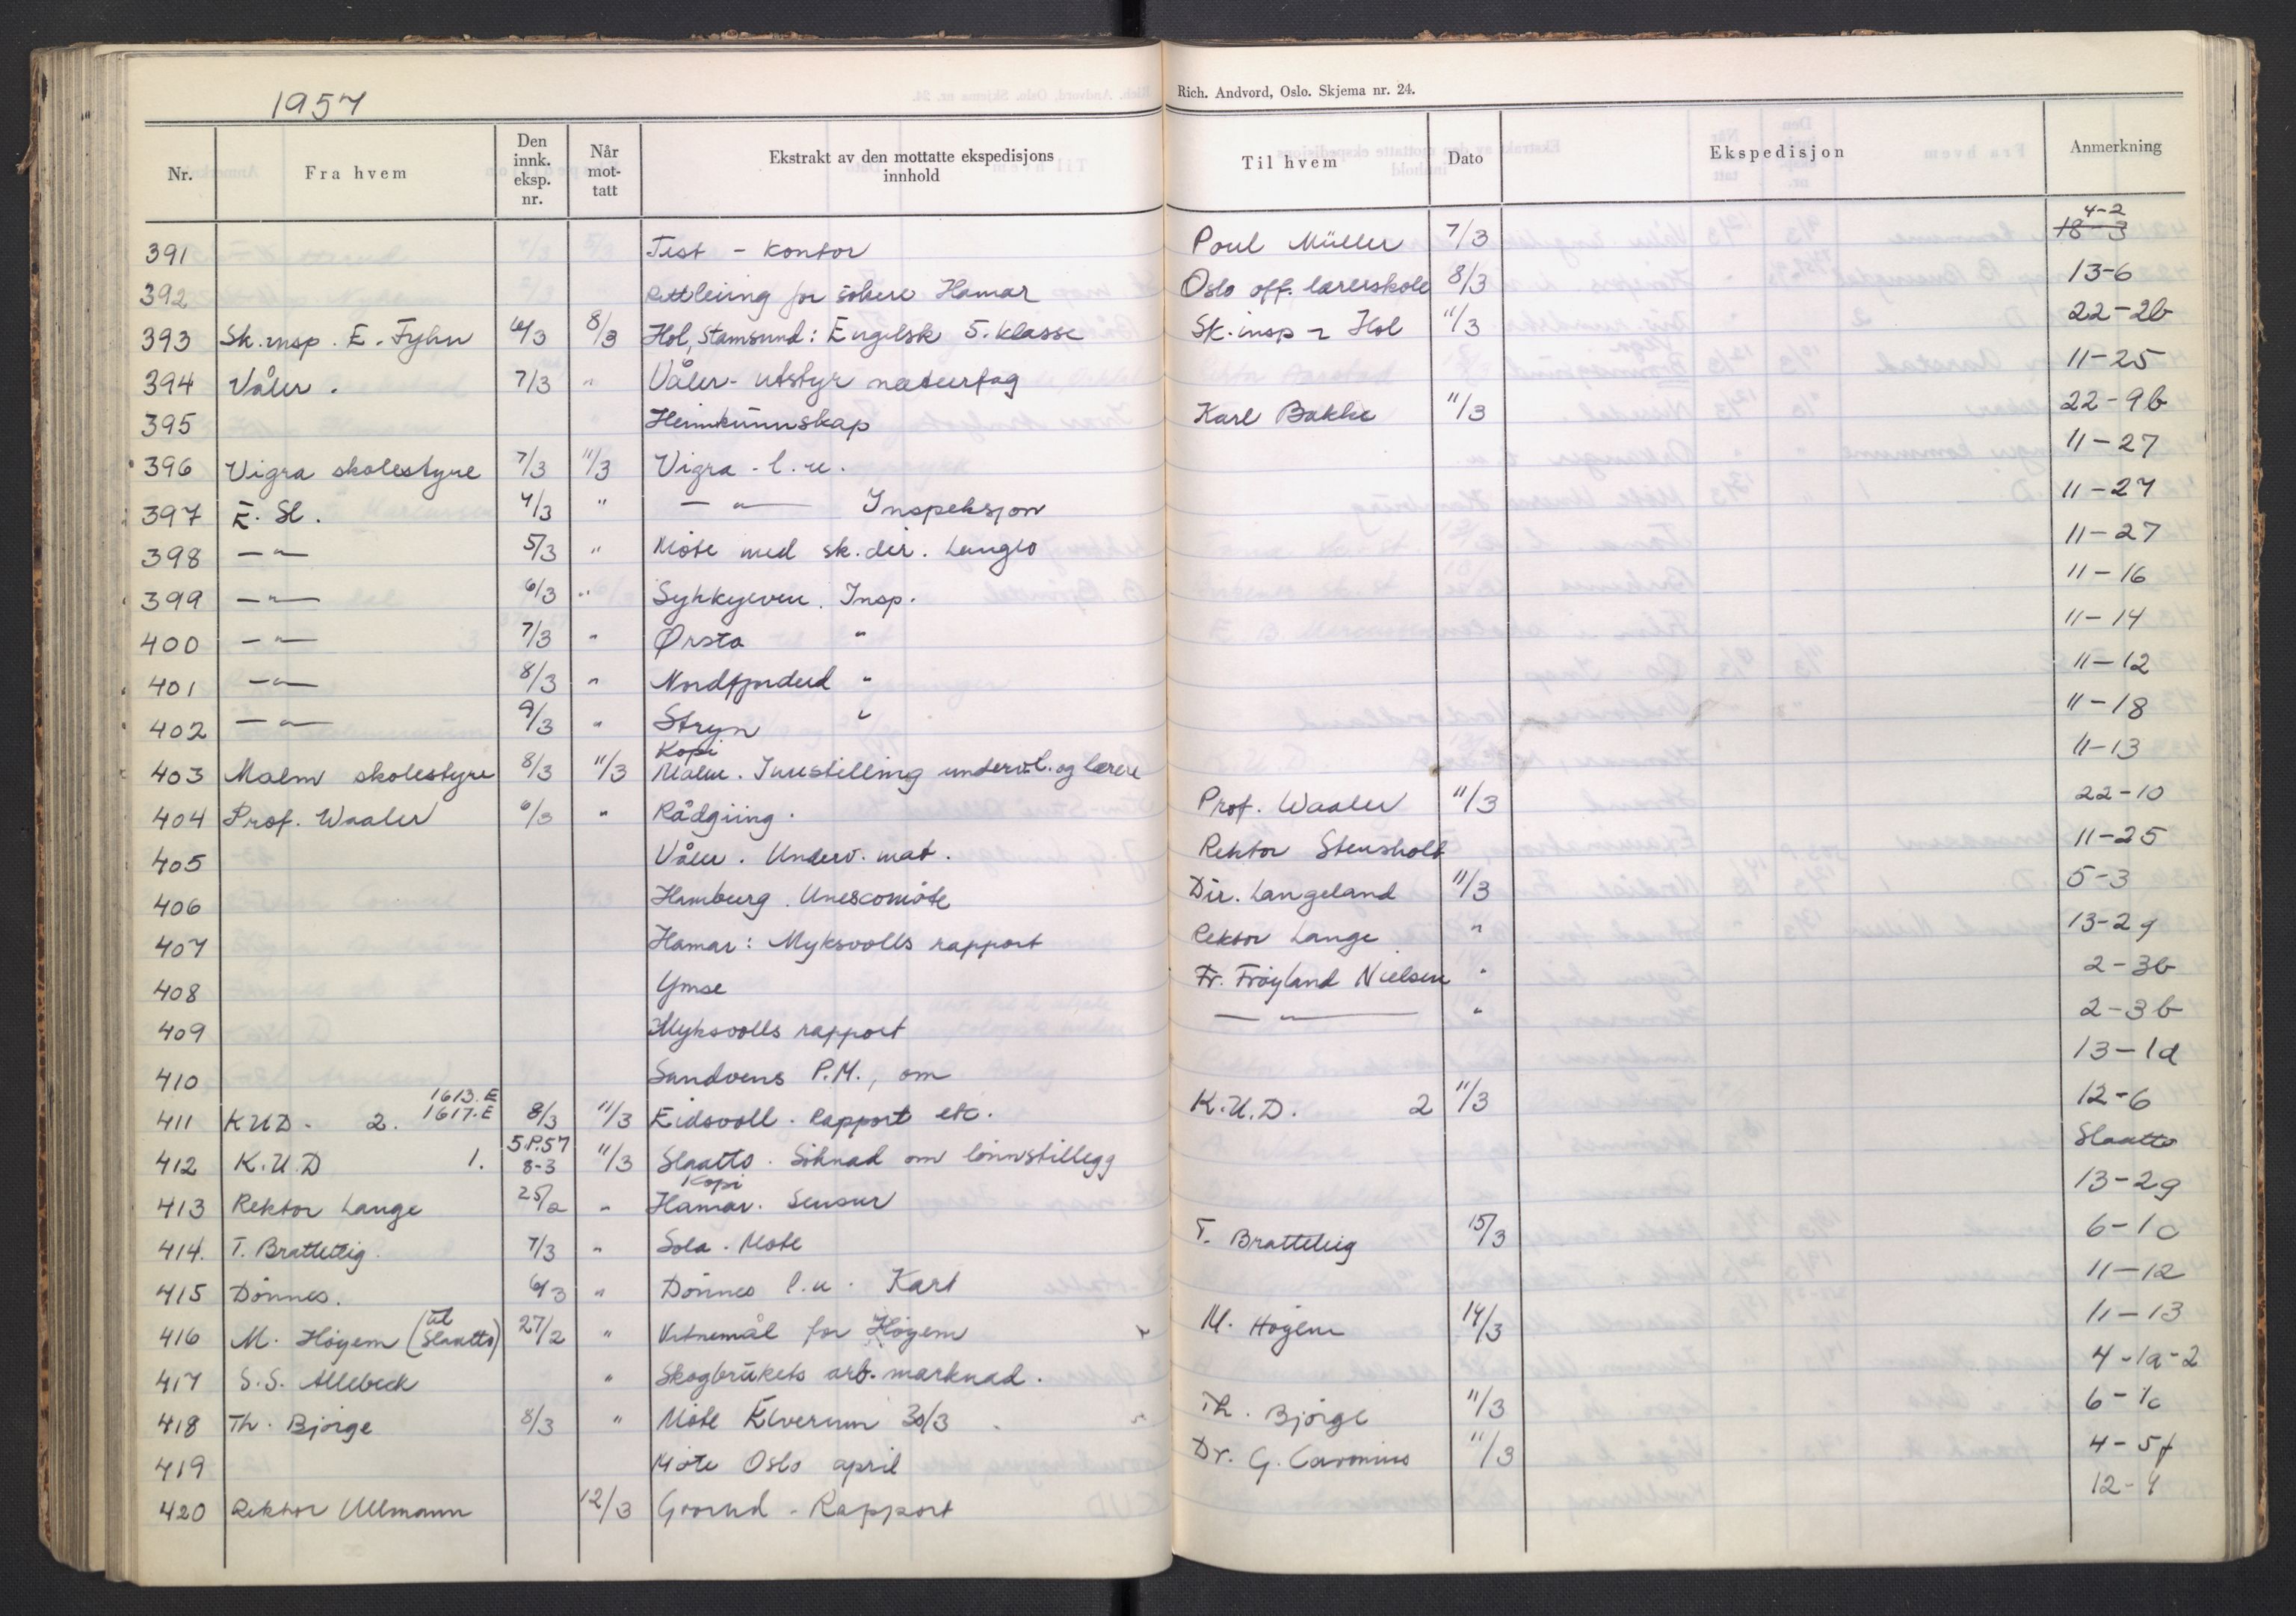 1957
Rich. Andvord, Oslo. Skjema nr. 24.
Nr. Fra hvem Den innk. eksp. nr. Når mot-tatt Ekstrakt av den mottatte ekspedisjons innhold Til hvem Dato Ekspedisjon Anmerkning
4-2
391 Test - kontor Poul Müller 7/3 18-3
392 Rettleiing for søkere Hamar Oslo off. lærerskole 8/3 13-6
393 Sk.insp. E. Fyhn 6/3 8/3 Hol, Stamsund: Engelsk 5. klasse Sk.insp - Hol 11/3 22-2b
394 Våler. 7/3 " Våler - utstyr naturfag 11-25
395 Heimkunnskap Karl Bakke 11/3 22-9b
396 Vigra skolestyre 7/3 11/3 Vigra - l.u. 11-27
397 E. Sl. 4/3 " — " — Inspeksjon 11-27
398 — " — 5/3 " Møte med sk.dir. Langlo 11-27
399 — " — 6/3 " Sykkylven. Insp. 11-16
400 — " — 7/3 " Ørsta " 11-14
401 — " — 8/3 " Nordfjordeid " 11-12
402 — " — 9/3 " Stryn " 11-18
Kopi
403 Malm skolestyre 8/3 11/3 Malm. Innstilling underv.l. og lærere 11-13
404 Prof. Waaler 6/3 " Rådgiing. Prof. Waaler 11/3 22-10
405 Våler. Underv. mat. Rektor Stensholt 11-25
406 Hamburg. Unescomøte Dir. Langeland 11/3 5-3
407 Hamar: Myksvolls rapport Rektor Lange " 13-2g
408 Ymse Fr. Frøyland Nielsen " 2-3b
409 Myksvolls rapport — " — " 2-3b
410 Sandvens P.M., om 13-1d
1613.E
411 KUD. 2. 1617.E 8/3 11/3 Eidsvoll. Rapport etc. K.U.D. 2 11/3 12-6
5.P.57
412 K.U.D 1. 8-3 11/3 Slaatto. Søknad om lønnstillegg Slaatto
Kopi
413 Rektor Lange 25/2 " Hamar. Sensur 13-2g
414. T. Bratteteig. 7/3 " Sola. Møte T. Bratteteig 15/3 6-1c
415 Dønnes. 6/3 " Dønnes l.u. Kart 11-12
til
416 M. Høgem (Slaatto) 27/2 " Vitnemål for Høgem M. Høgem 14/3 11-13
417 S.S. Allebeck " Skogbrukets arb.marknad. 4-1a-2
418 Th. Bjørge 8/3 " Møte Elverum 30/3 Th. Bjørge 11/3 6-1c
419 Møte Oslo april Dr. G. Cavonius 11/3 4-5f
420 Rektor Ullmann 12/3 Grorud - Rapport 12-4